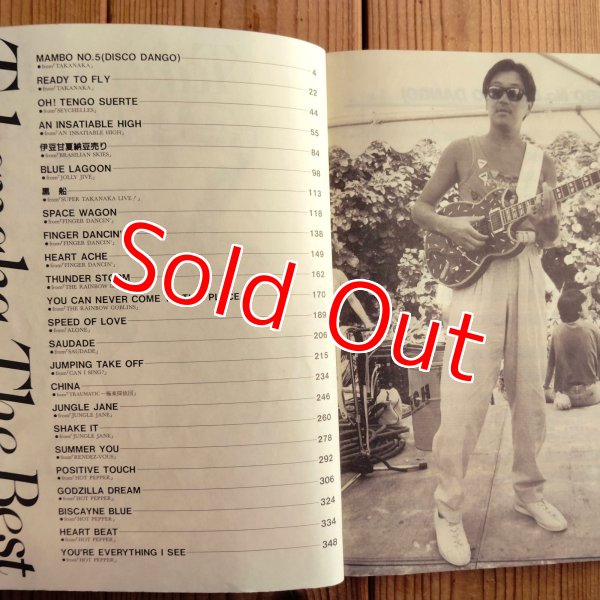 Takanaka The Best
MAMBO NO.5(DISCO DANGO) 4
●from「TAKANAKA」
READY TO FLY 22
●from「TAKANAKA」
OH! TENGO SUERTE 44
●from「SEYCHELLES」
AN INSATIABLE HIGH 55
●from「AN INSATIABLE HIGH」
伊豆甘夏納豆売り 84
●from「BRASILIAN SKIES」
BLUE LAGOON 98
●from「JOLLY JIVE」
黒 船 113
●from「SUPER TAKANAKA LIVE!」
SPACE WAGON 118
●from「FINGER DANCIN'」
FINGER DANCIN' 138
●from「FINGER DANCIN'」
HEART ACHE 149
●from「FINGER DANCIN'」
THUNDER STORM 162
●from「THE RAINBOW GOBLINS」
YOU CAN NEVER COME PLACE 170
●from「THE RAINBOW GOBLINS」
SPEED OF LOVE 189
●from「ALONE」
SAUDADE 206
●from「SAUDADE」
JUMPING TAKE OFF 215
●from「CAN I SING?」
CHINA 234
●from「TRAUMATIC—極東探偵団」
JUNGLE JANE 246
●from「JUNGLE JANE」
SHAKE IT 260
●from「JUNGLE JANE」
SUMMER YOU 278
●from「RENDEZ-VOUS」
POSITIVE TOUCH 292
●from「HOT PEPPER」
GODZILLA DREAM 306
●from「HOT PEPPER」
BISCAYNE BLUE 324
●from「HOT PEPPER」
HEART BEAT 334
●from「HOT PEPPER」
YOU'RE EVERYTHING I SEE 348
●from「HOT PEPPER」
Sold Out